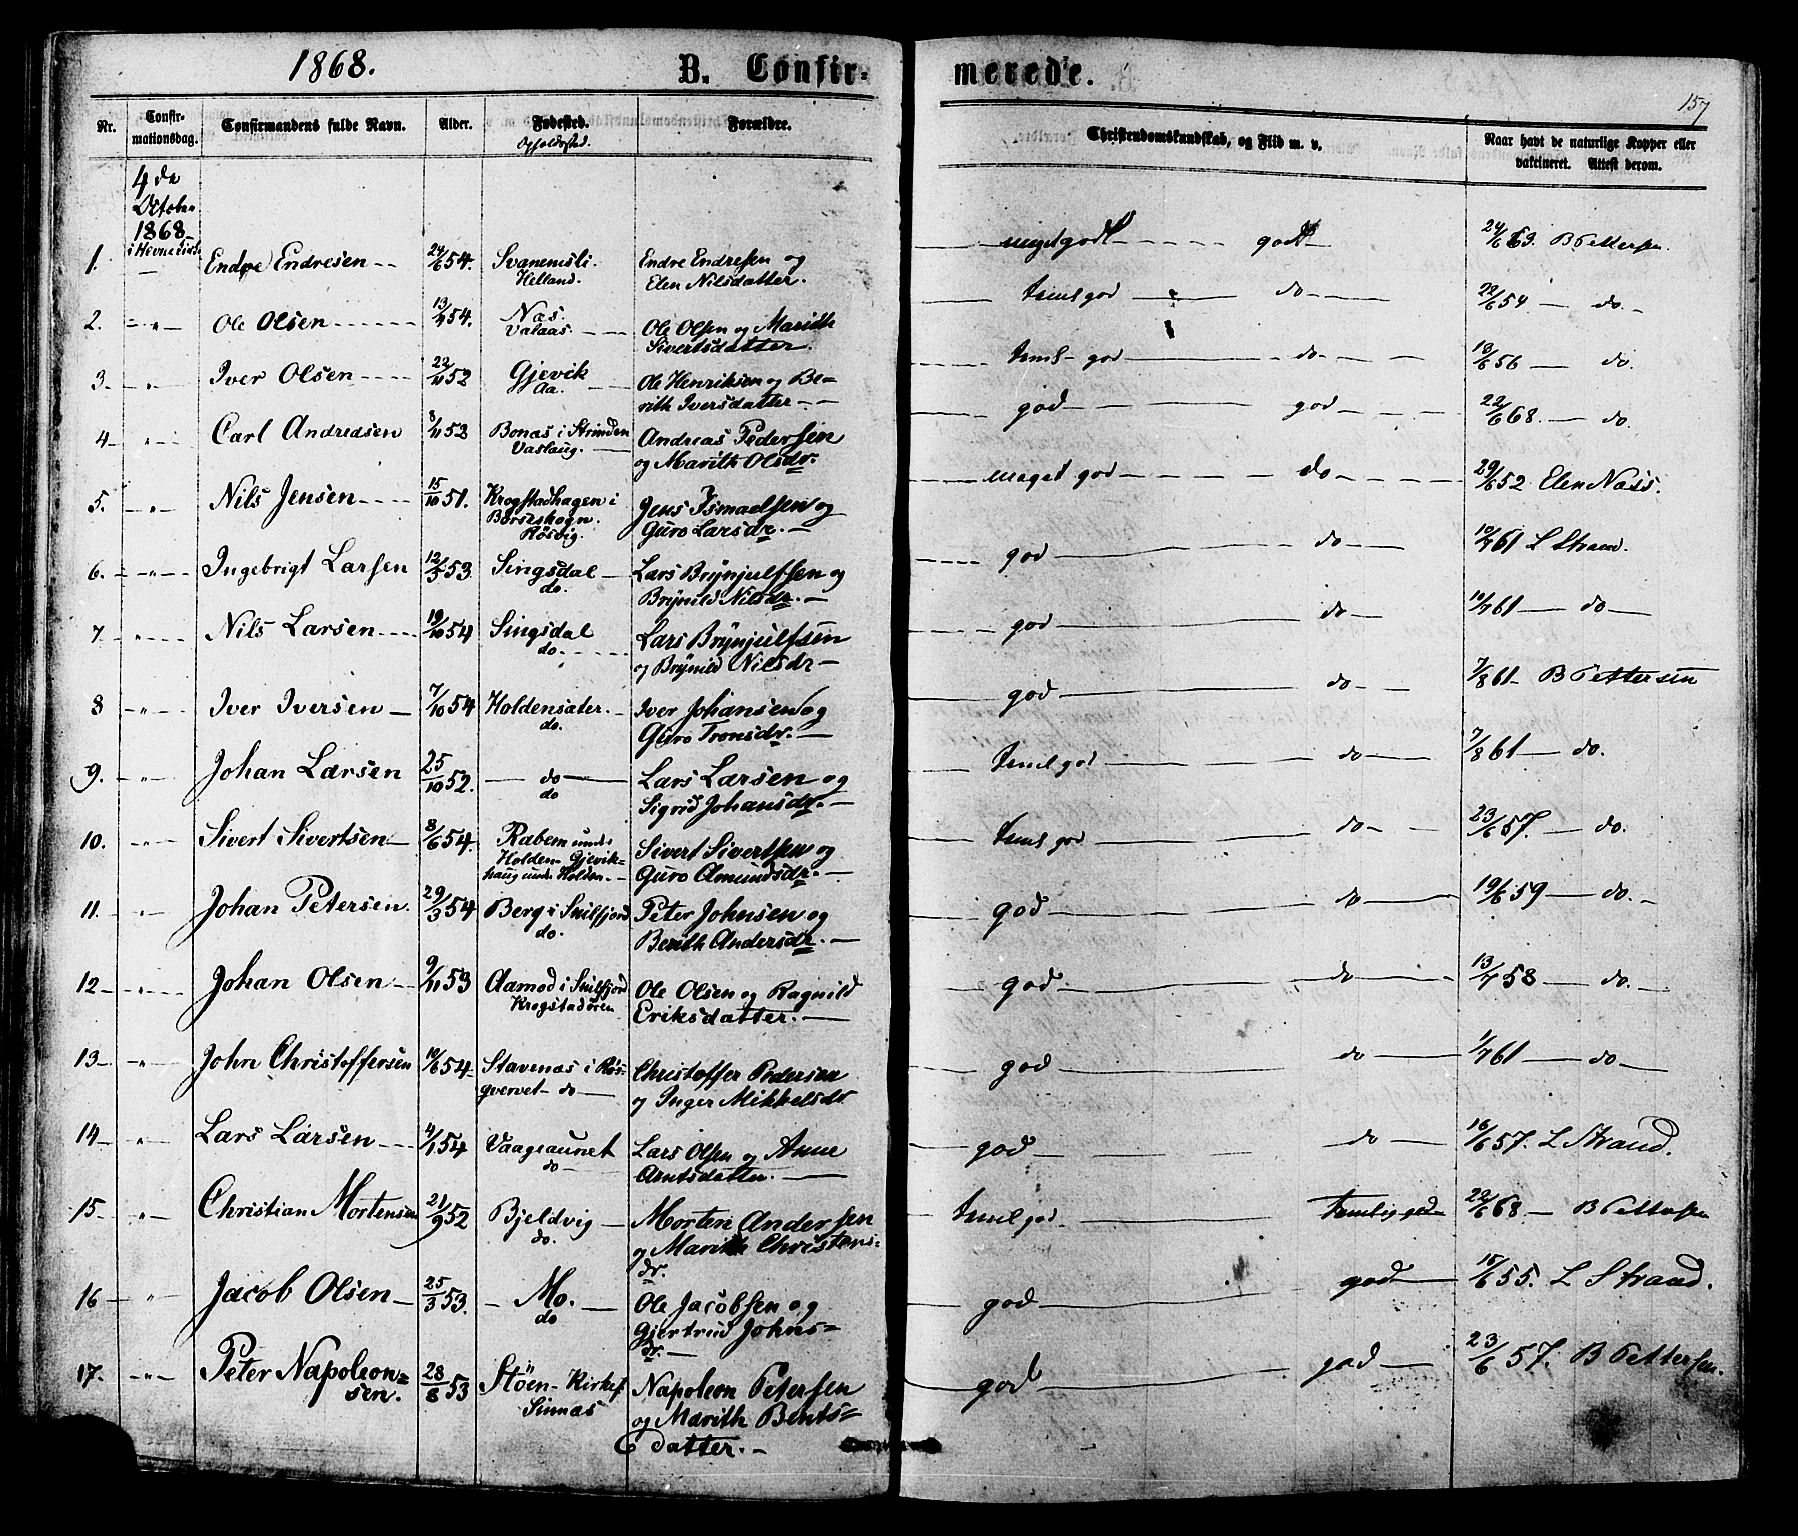 1868.
B. Confir-
merede.
157
Nr.
Confir-
mationsdag.
Confirmandens fulde Navn.
Alder.
Fødested.
Opholdssted.
Forældre.
Christendomskundskab, og Flid m. v.
Naar havt de naturlige Kopper eller
vakcineret. Attest derom.
4 de
October
1868
1. Endre Endresen 24/6 54. Svanemsli. Endre Endresen og
Helland. Elen Nilsdatter.
meget godt godt 24/6 63. B Pettersen
2. Ole Olsen 54. Næs. Ole Olsen og Marith
Valaas. Sivertsdatter.
teml god do 22/6 54 do.
3. Iver Olsen 52 Gjevik Ole Henriksen og Be-
Aa. rith Iversdatter
teml god do 13/6 56 do.
4 Carl Andreasen 53 Bonæs i Strinden Andreas Pedersen
Vaslaug. og Marith Olsdr.
god god 22/6 68. do.
5. Nils Jensen 15/10 51. Krogstadhagen i Jens Ismaelsen og
Børseskogn. Guro Larsdr.
Røsvig.
meget god do 29/6 52 Elen Næss.
6. Ingebrigt Larsen 12/3 53. Singsdal Lars Brynjulfsen og
do. Brynild Nilsdr.
god do 61 L Strand.
7. Nils Larsen 19/10 54 Singsdal Lars Brynjulfsen
do. og Brynild Nilsdr
god do 61 do
8 Iver Iversen 7/10 54 Holdensæter. Iver Johansen og
do. Guro Tronsdr.
god do 7/8 61 B Pettersen
9. Johan Larsen 25/10 52. do Lars Larsen og
do Sigrid Johansdr.
teml god do 7/8 61 do.
10. Sivert Sivertsen 8/6 54. Rabem under Sivert Sivertsen og
Holden Gjevik-
haug under Holden. Guro Amundsdr.
teml god do 23/6 57. do.
11. Johan Petersen 29/3 54 Berg i Snilfjord Peter Johnsen og
do. Berith Andersdr.
god do 19/6 59 do.
12 Johan Olsen 9/11 53 Aamod i Snilfjord Ole Olsen og Ragnild
Krogstadøren Eriksdatter.
god do 13/7 58 do.
13 John Christoffersen 54 Stavenæs i Christoffer Pedersen
do og Inger Mikkelsdr
god do 1/7 61 do
14 Lars Larsen 54 Vaageaunet Lars Olsen og Anne
do Arntsdatter.
god do 16/6 57. L Strand.
15. Christian Mortensen 21/9 52 Bjeldvig Morten Andersen
do. og Marith Christens-
dr.
teml god temlig god 22/6 68 B Pettersen
16 Jacob Olsen 25/3 53. Mo. Ole Jacobsen og
do Gjertrud Johns-
dr.
god god 15/6 55. L Strand.
17. Peter Napoleon- 28/8 53 Støen Kirkes Napoleon Petersen
sen. Sinnæs og Marith Bents-
datter.
god god 23/6 57. B Pettersen.